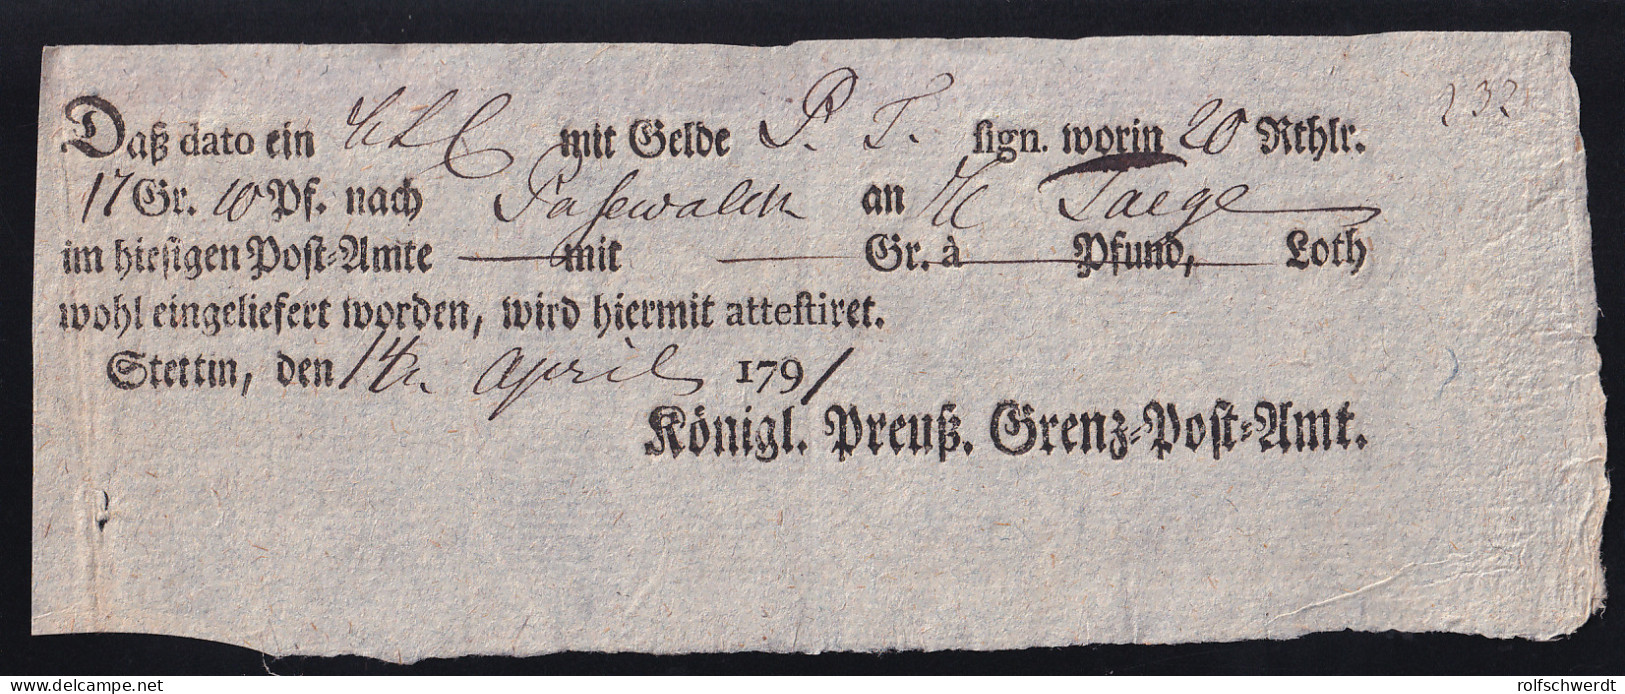 Daß dato ein mit Gelde P. T. sign. worin 20 Rthlr.
17 Gr. 10 Pf. nach Pasewalck an H Taege
im hiesigen Post-Amte mit Gr. à Pfund, Loth
wohl eingeliefert worden, wird hiermit attestiret.
Stettin, den 14n April 1791
Königl. Preuß. Grenz-Post-Amt.
232
www.delcampe.net
rolfschwerdt